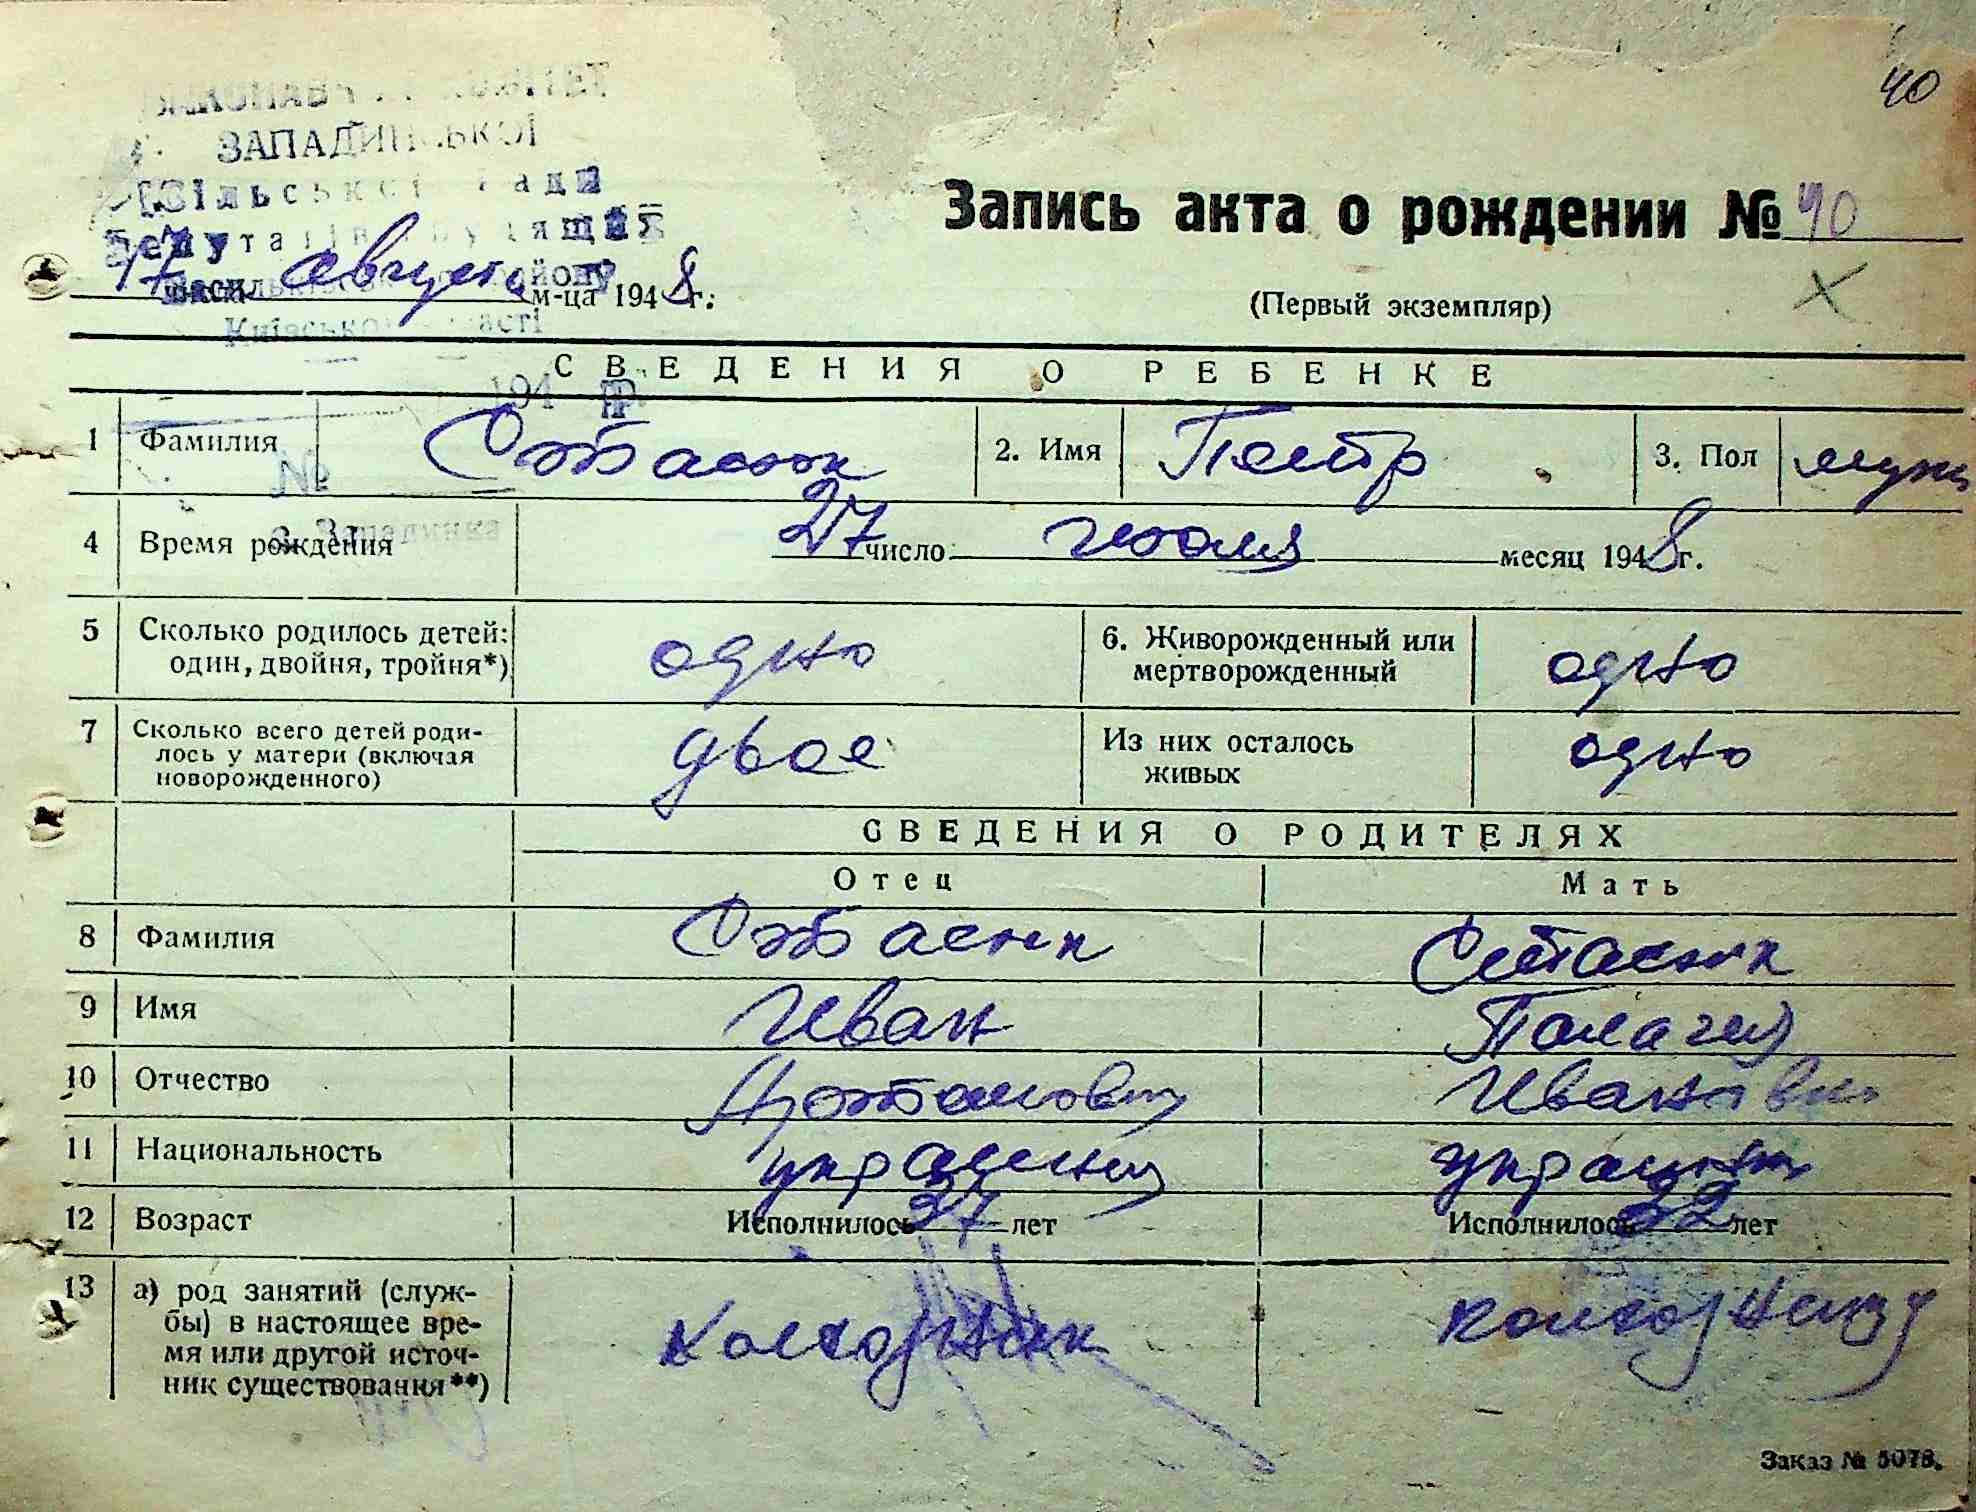 40
ЗАПАДИНСЬКОЇ
Сільської Ради
Депутатів трудящих
Київської області
194 р.
№
с. Западинка
Запись акта о рождении № 40
17 августа м-ца 1948 г.
(Первый экземпляр)
СВЕДЕНИЯ О РЕБЕНКЕ
1 Фамилия Стасюк 2. Имя Петр 3. Пол муж
4 Время рождения 27 число июля месяц 1948 г.
5 Сколько родилось детей: один, двойня, тройня*) одно 6. Живорожденный или мертворожденный одно
7 Сколько всего детей роди-
лось у матери (включая
новорожденного) двое Из них осталось живых одно
СВЕДЕНИЯ О РОДИТЕЛЯХ
Отец Мать
8 Фамилия Стасюк Стасюк
9 Имя Иван Палагея
10 Отчество Ивановна
11 Национальность
12 Возраст Исполнилось 37 лет Исполнилось 32 лет
13 а) род занятий (служ-
бы) в настоящее вре-
мя или другой источ-
ник существования**) колхозник
Заказ № 5078.